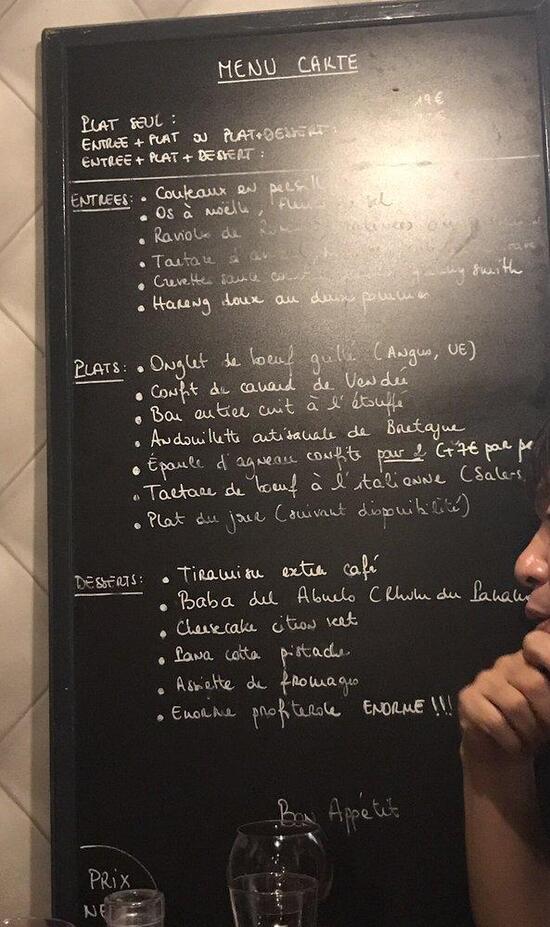 MENU CARTE
PLAT SEUL : 19€
ENTREE + PLAT OU PLAT+DESSERT :
ENTREE + PLAT + DESSERT :
ENTREES :
• Couteaux en
• Os à moëlle,
• Ravioles de
• Tartare
• Crevette sauce smith
• Hareng doux aux deux pommes
PLATS :
• Onglet de boeuf grillé (Angus, UE)
• Confit de canard de Vendée
• Bar entier cuit à l'étouffé
• Andouillette artisanale de Bretagne
• Épaule d'agneau confite pour 2 (+7€ par pe
• Tartare de boeuf à l'italienne (Salers,
• Plat du jour (suivant disponibilité)
DESSERTS :
• Tiramisu extra café
• Baba del Abuelo (Rhum du
• Cheesecake citron vert
• Pana cotta pistache
• Assiette de fromages
• Enorme profiterole ENORME !!!
Bon Appétit
PRIX
NE